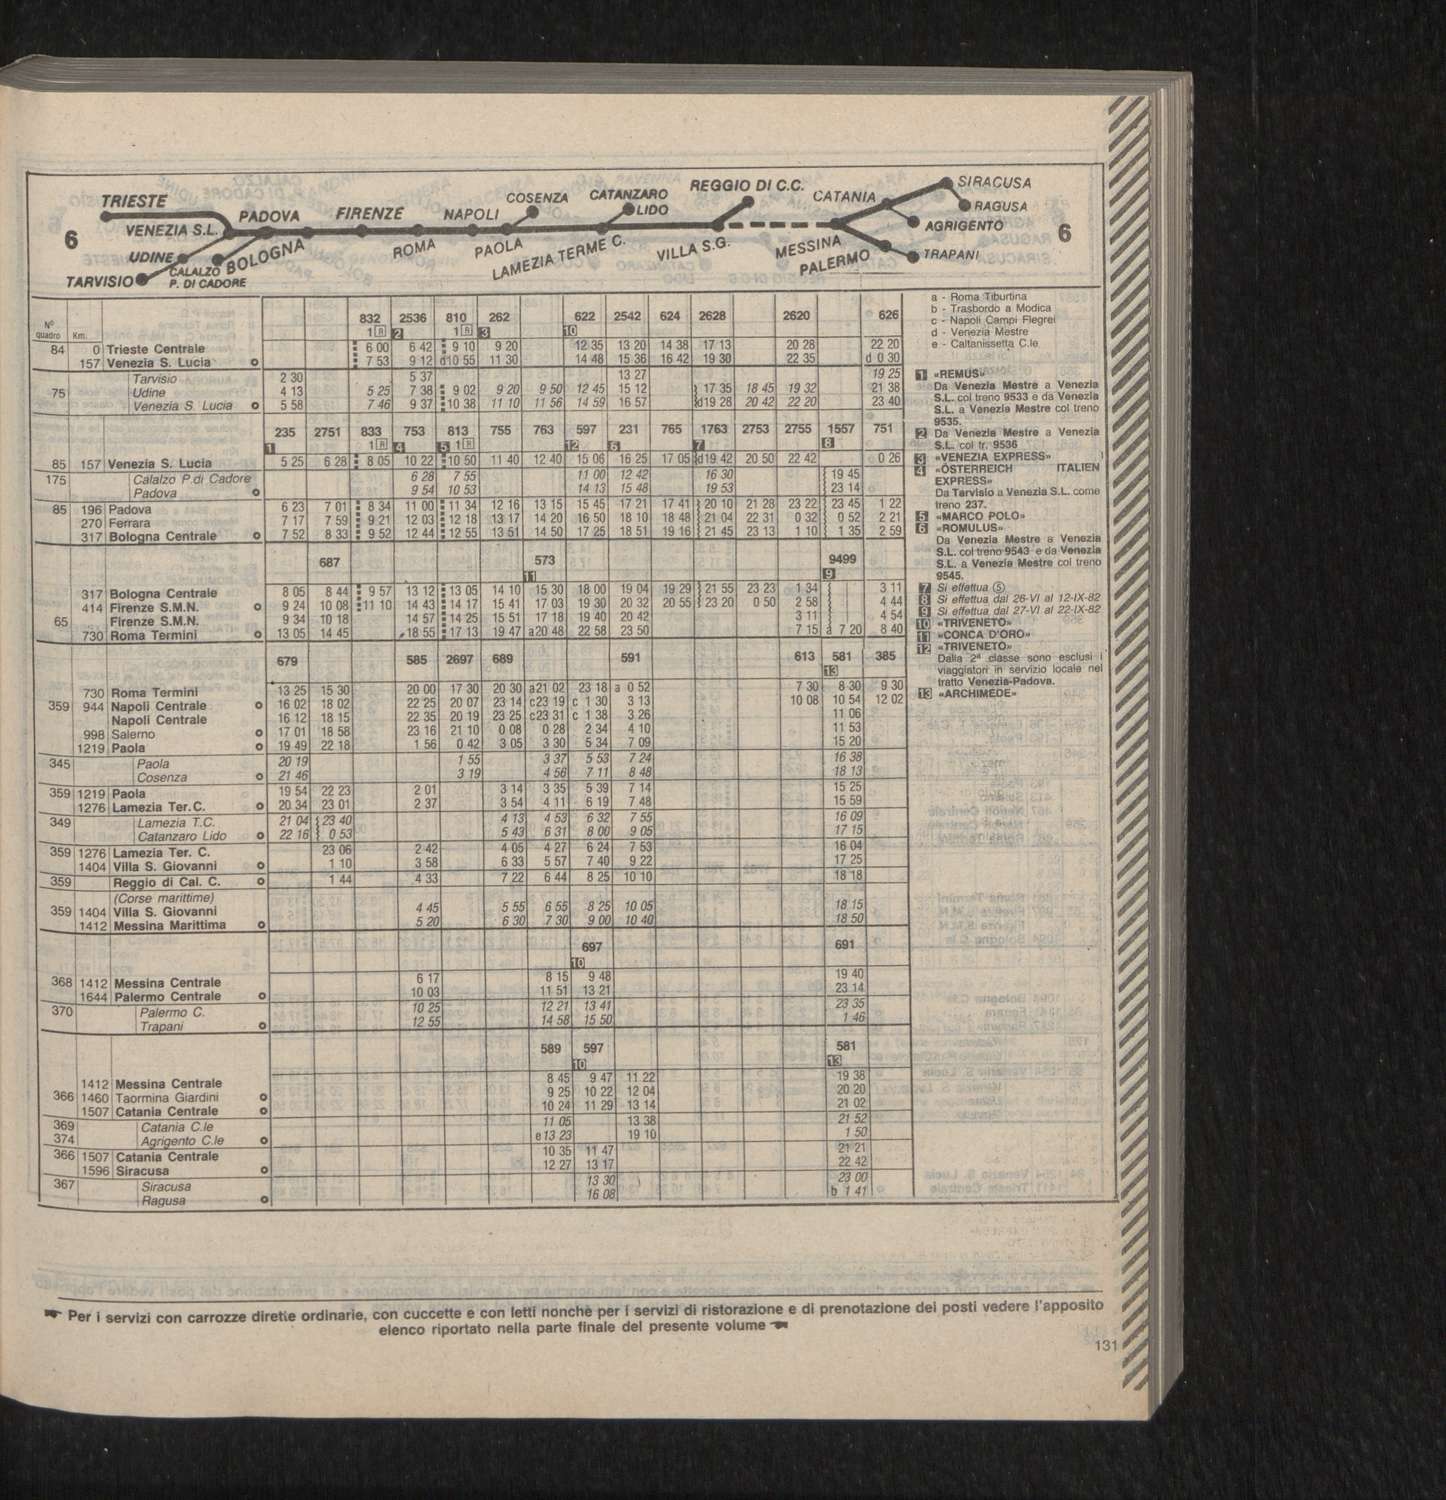 6
TRIESTE
VENEZIA S.L.
UDINE
TARVISIO
CALALZO
P. DI CADORE
PADOVA
BOLOGNA
FIRENZE
ROMA
NAPOLI
PAOLA
COSENZA
LAMEZIA TERME C.
CATANZARO
LIDO
VILLA S.G.
REGGIO DI C.C.
MESSINA
PALERMO
CATANIA
SIRACUSA
RAGUSA
AGRIGENTO
TRAPANI
6
N° quadro Km.
832 2536 810 262 622 2542 624 2628 2620 626
1 R 2 1 R 3 10
84 0 Trieste Centrale 6 00 6 42 9 10 9 20 12 35 13 20 14 38 17 13 20 28 22 20
157 Venezia S. Lucia 7 53 9 12 d10 55 11 30 14 48 15 36 16 42 19 30 22 35 d 0 30
Tarvisio 2 30 5 37 13 27 19 25
75 Udine 4 13 5 25 7 38 9 02 9 20 9 50 12 45 15 12 17 35 18 45 19 32 21 38
Venezia S. Lucia 5 58 7 46 9 37 10 38 11 10 11 56 14 59 16 57 d19 28 20 42 22 20 23 40
235 2751 833 753 813 755 763 597 231 765 1763 2753 2755 1557 751
1 1 R 4 5 1 R 12 6 7 8
85 157 Venezia S. Lucia 5 25 6 28 8 05 10 22 10 50 11 40 12 40 15 06 16 25 17 05 d19 42 20 50 22 42 0 26
175 Calalzo P.di Cadore 6 28 7 55 11 00 12 42 16 30 19 45
Padova 9 54 10 53 14 13 15 48 19 53 23 14
85 196 Padova 6 23 7 01 8 34 11 00 11 34 12 16 13 15 15 45 17 21 17 41 20 10 21 28 23 22 23 45 1 22
270 Ferrara 7 17 7 59 9 21 12 03 12 18 13 17 14 20 16 50 18 10 18 48 21 04 22 31 0 32 0 52 2 21
317 Bologna Centrale 7 52 8 33 9 52 12 44 12 55 13 51 14 50 17 25 18 51 19 16 21 45 23 13 1 10 1 35 2 59
687 573 9499
11 9
317 Bologna Centrale 8 05 8 44 9 57 13 12 13 05 14 10 15 30 18 00 19 04 19 29 21 55 23 23 1 34 3 11
414 Firenze S.M.N. 9 24 10 08 11 10 14 43 14 17 15 41 17 03 19 30 20 32 20 55 23 20 0 50 2 58 4 44
65 Firenze S.M.N. 9 34 10 18 14 57 14 25 15 51 17 18 19 40 20 42 3 11 4 54
730 Roma Termini 13 05 14 45 18 55 17 13 19 47 a20 48 22 58 23 50 7 15 a 7 20 8 40
679 585 2697 689 591 613 581 385
13
730 Roma Termini 13 25 15 30 20 00 17 30 20 30 a21 02 23 18 a 0 52 7 30 8 30 9 30
359 944 Napoli Centrale 16 02 18 02 22 25 20 07 23 14 c23 19 c 1 30 3 13 10 08 10 54 12 02
Napoli Centrale 16 12 18 15 22 35 20 19 23 25 c23 31 c 1 38 3 26 11 06
998 Salerno 17 01 18 58 23 16 21 10 0 08 0 28 2 34 4 10 11 53
1219 Paola 19 49 22 18 1 56 0 42 3 05 3 30 5 34 7 09 15 20
345 Paola 20 19 1 55 3 37 5 53 7 24 16 38
Cosenza 21 46 3 19 4 56 7 11 8 48 18 13
359 1219 Paola 19 54 22 23 2 01 3 14 3 35 5 39 7 14 15 25
1276 Lamezia Ter. C. 20 34 23 01 2 37 3 54 4 11 6 19 7 48 15 59
349 Lamezia T.C. 21 04 23 40 4 13 4 53 6 32 7 55 16 09
Catanzaro Lido 22 16 0 53 5 43 6 31 8 00 9 05 17 15
359 1276 Lamezia Ter. C. 23 06 2 42 4 05 4 27 6 24 7 53 16 04
1404 Villa S. Giovanni 1 10 3 58 6 33 5 57 7 40 9 22 17 25
359 Reggio di Cal. C. 1 44 4 33 7 22 6 44 8 25 10 10 18 18
(Corse marittime)
359 1404 Villa S. Giovanni 4 45 5 55 6 55 8 25 10 05 18 15
1412 Messina Marittima 5 20 6 30 7 30 9 00 10 40 18 50
697 691
10
368 1412 Messina Centrale 6 17 8 15 9 48 19 40
1644 Palermo Centrale 10 03 11 51 13 21 23 14
370 Palermo C. 10 25 12 21 13 41 23 35
Trapani 12 55 14 58 15 50 1 46
589 597 581
10 13
1412 Messina Centrale 8 45 9 47 11 22 19 38
366 1460 Taormina Giardini 9 25 10 22 12 04 20 20
1507 Catania Centrale 10 24 11 29 13 14 21 02
369 Catania C.le 11 05 13 38 21 52
374 Agrigento C.le e13 23 19 10 1 50
366 1507 Catania Centrale 10 35 11 47 21 21
1596 Siracusa 12 27 13 17 22 42
367 Siracusa 13 30 23 00
Ragusa 16 08 b 1 41
a - Roma Tiburtina
b - Trasbordo a Modica
c - Napoli Campi Flegrei
d - Venezia Mestre
e - Caltanissetta C.le
1 «REMUS»
Da Venezia Mestre a Venezia
S.L. col treno 9533 e da Venezia
S.L. a Venezia Mestre col treno
9535.
2 Da Venezia Mestre a Venezia
S.L. col tr. 9536
3 «VENEZIA EXPRESS»
4 «ÖSTERREICH ITALIEN
EXPRESS»
Da Tarvisio a Venezia S.L. come
treno 237.
5 «MARCO POLO»
6 «ROMULUS»
Da Venezia Mestre a Venezia
S.L. col treno 9543 e da Venezia
S.L. a Venezia Mestre col treno
9545.
7 Si effettua ⑤
8 Si effettua dal 26-VI al 12-IX-82
9 Si effettua dal 27-VI al 22-IX-82
10 «TRIVENETO»
11 «CONCA D'ORO»
12 «TRIVENETO»
Dalla 2ª classe sono esclusi i
viaggiatori in servizio locale nel
tratto Venezia-Padova.
13 «ARCHIMEDE»
Per i servizi con carrozze dirette ordinarie, con cuccette e con letti nonchè per i servizi di ristorazione e di prenotazione dei posti vedere l'apposito
elenco riportato nella parte finale del presente volume
131